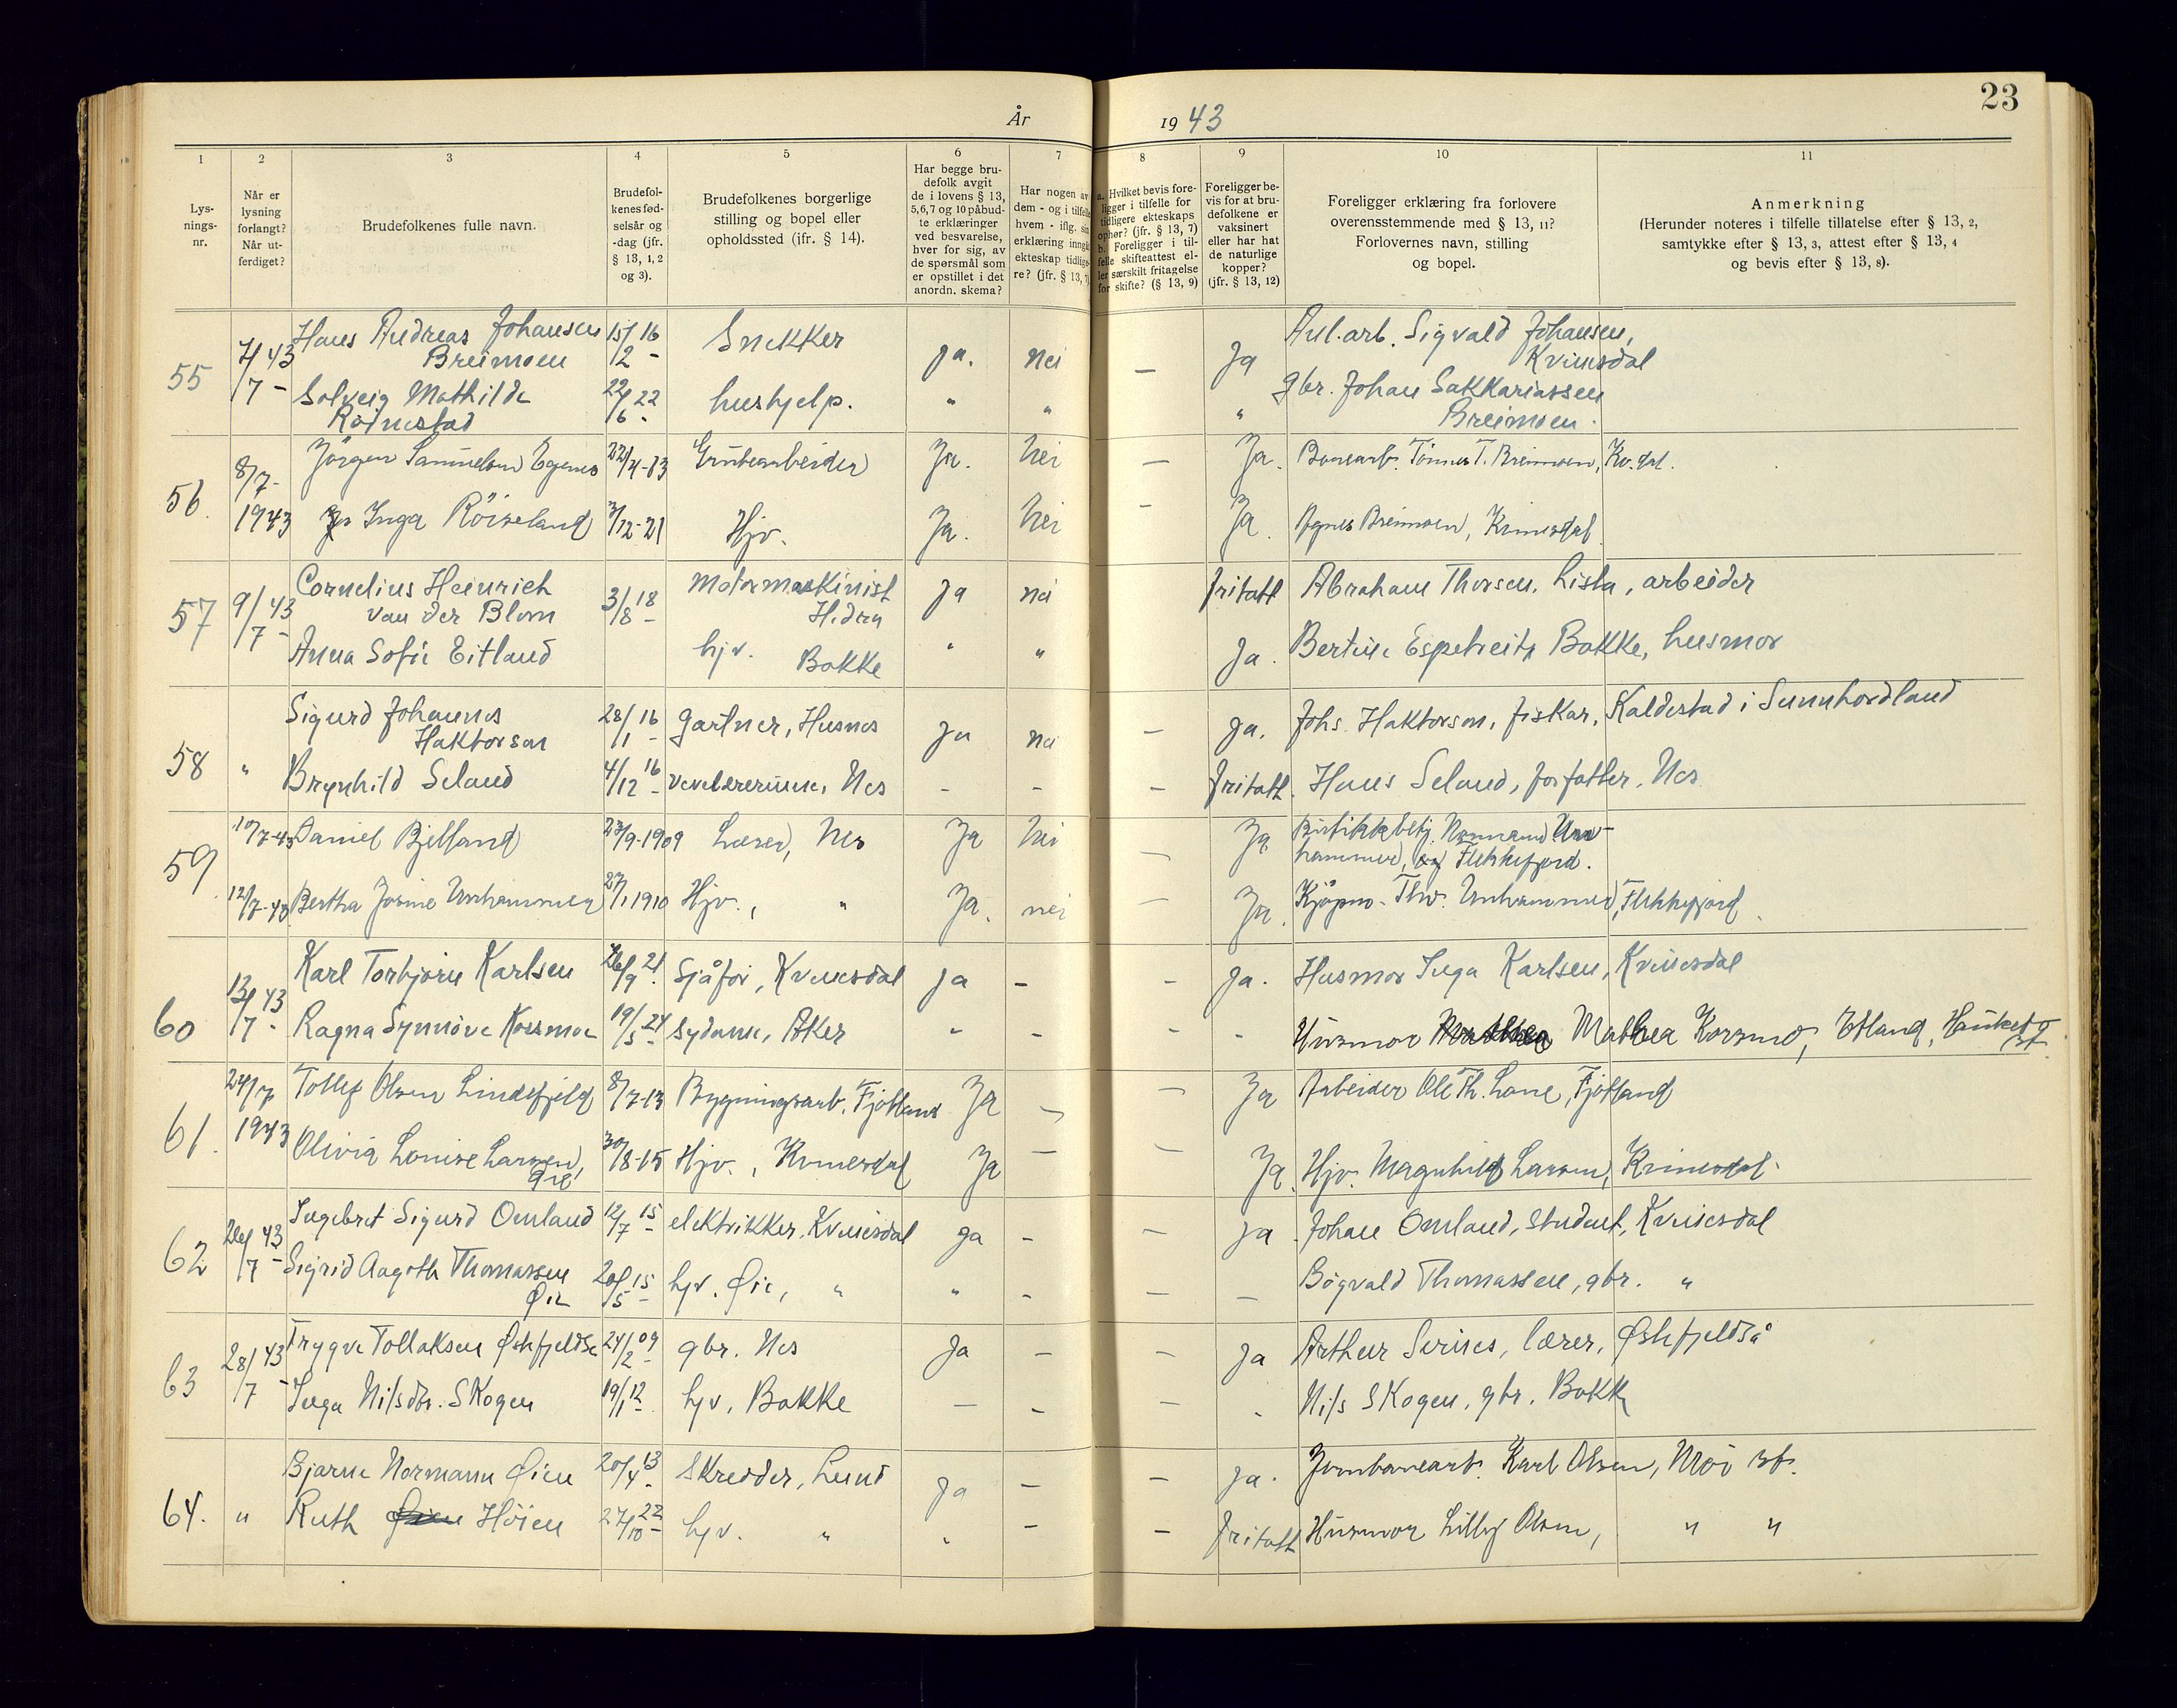 23
År 1943
1
2
3
4
5
6
7
8
9
10
11
Lys-
nings-
nr.
Når er
lysning
forlangt?
Når ut-
ferdiget?
Brudefolkenes fulle navn.
Brudefol-
kenes fød-
selsår og
-dag (jfr.
§ 13, 1, 2
og 3).
Brudefolkenes borgerlige
stilling og bopel eller
opholdssted (jfr. § 14).
Har begge bru-
defolk avgit
de i lovens § 13,
5,6,7 og 10 påbud-
te erklæringer
ved besvarelse,
hver for sig, av
de spørsmål som
er opstillet i det
anordn. skema?
Har nogen av
dem - og i tilfelle
hvem - iflg. sin
erklæring inngåt
ekteskap tidlige-
re? (jfr. § 13, 7)
a. Hvilket bevis fore-
ligger i tilfelle for
tidligere ekteskaps
ophør? (jfr. § 13, 7)
b. Foreligger i til-
felle skifteattest el-
ler særskilt fritagelse
for skifte? (§ 13, 9)
Foreligger be-
vis for at bru-
defolkene er
vaksinert
eller har hat
de naturlige
kopper?
(jfr. § 13, 12)
Foreligger erklæring fra forlovere
overensstemmende med § 13, 11?
Forlovernes navn, stilling
og bopel.
Anmerkning
(Herunder noteres i tilfelle tillatelse efter § 13, 2,
samtykke efter § 13, 3, attest efter § 13, 4
og bevis efter § 13, 8).
55 7/7 43 - Hans Andreas Johansen 15/12 16 - Snekker ja. nei — Ja Anl.arb. Sigvald Johansen,
Breimoen Kvinesdal
Solveig Mathilde 22/6 22 - hushjelp. " " " gbr. Johan Sakkariassen
Rødnestad Breimoen.
56. 8/7- Jörgen Samuelson Egenes 22/4-13 Grubearbeider Ja. Nei — Ja. Banearb. Tönnes T. Breimoen, Kv.dal.
1943 Inga Röiseland 3/12-21 Hjv. Ja. Nei - Ja. Agnes Breimoen, Kvinesdal
57 9/7 43 - Cornelius Heinrich 3/8 18 - Motormaskinist Ja nei fritatt Abraham Thorsen, Lista, arbeider
van der Blom Hidra
Anna Sofie Eitland hjv. Bakke " " Ja. Bertine Espetveit, Bakke, husmor
58 " Sigurd Johannes 28/1 16 - gartner, Husnes Ja nei — ja. Johs. Haktorson, fiskar, Kaldestad i Sunnhordland
Haktorson
Brynhild Seland 4/12 16 - vevelærerinne, Nes - - — fritatt. Hans Seland, forfatter, Nes
59 10/7-43 Daniel Bjelland 23/9-1909 Lærer, Nes Ja Nei — Ja Butikkbetj. Normann Un-
hammer, Flekkefjord.
12/7-43 Bertha Josine Unhammer 27/1 1910 Hjv., " Ja. nei — Ja. Kjöpm. Thv. Unhammer, Flekkefjord
60 13/7 43 - Karl Torbjørn Karlsen 26/9 21 - Sjåfør, Kvinesdal ja - - ja. Husmor Inga Karlsen, Kvinesdal
Ragna Synnøve Korsmoe 19/5 24 - sydame, Aker " - - - Husmor Mathea Korsmo, Etland,
61. 24/7 Tollef Olsen Lindefjeld 8/7-13 Bygningsarb. Fjotland Ja — — Ja Arbeider Ole Th. Lone, Fjotland
1943 Olivia Louise Larsen, 30/8-15 Hjv., Kvinesdal Ja — — Ja. Hjv. Magnhild Larsen, Kvinesdal.
62 26/7 43 - Ingebret Sigurd Omland 12/7 15 - elektrikker, Kvinesdal ja - — ja Johan Omland, student, Kvinesdal
Sigrid Aagoth Thomassen 20/5 15 - hjv. Øie, " " - — — Bøgvald Thomassen, gbr. "
Øie
63 28/7 43 - Trygve Tollaksen Østefjeldså 24/2 09 - gbr. Nes Ja — — ja Arthur Sirnes, lærer, Østefjeldså
Inga Nilsdtr. Skogen 19/1 12 - hjv, Bakke — - — - Nils Skogen, gbr. Bakke
64. " Bjarne Normann Øien 20/4 13 - Skredder, Lund ja — — ja. Jernbanearb. Karl Olsen, Moi st.
Ruth Høien 27/10 22 - hjv. " " — — fritatt Husmor Lilly Olsen, " "